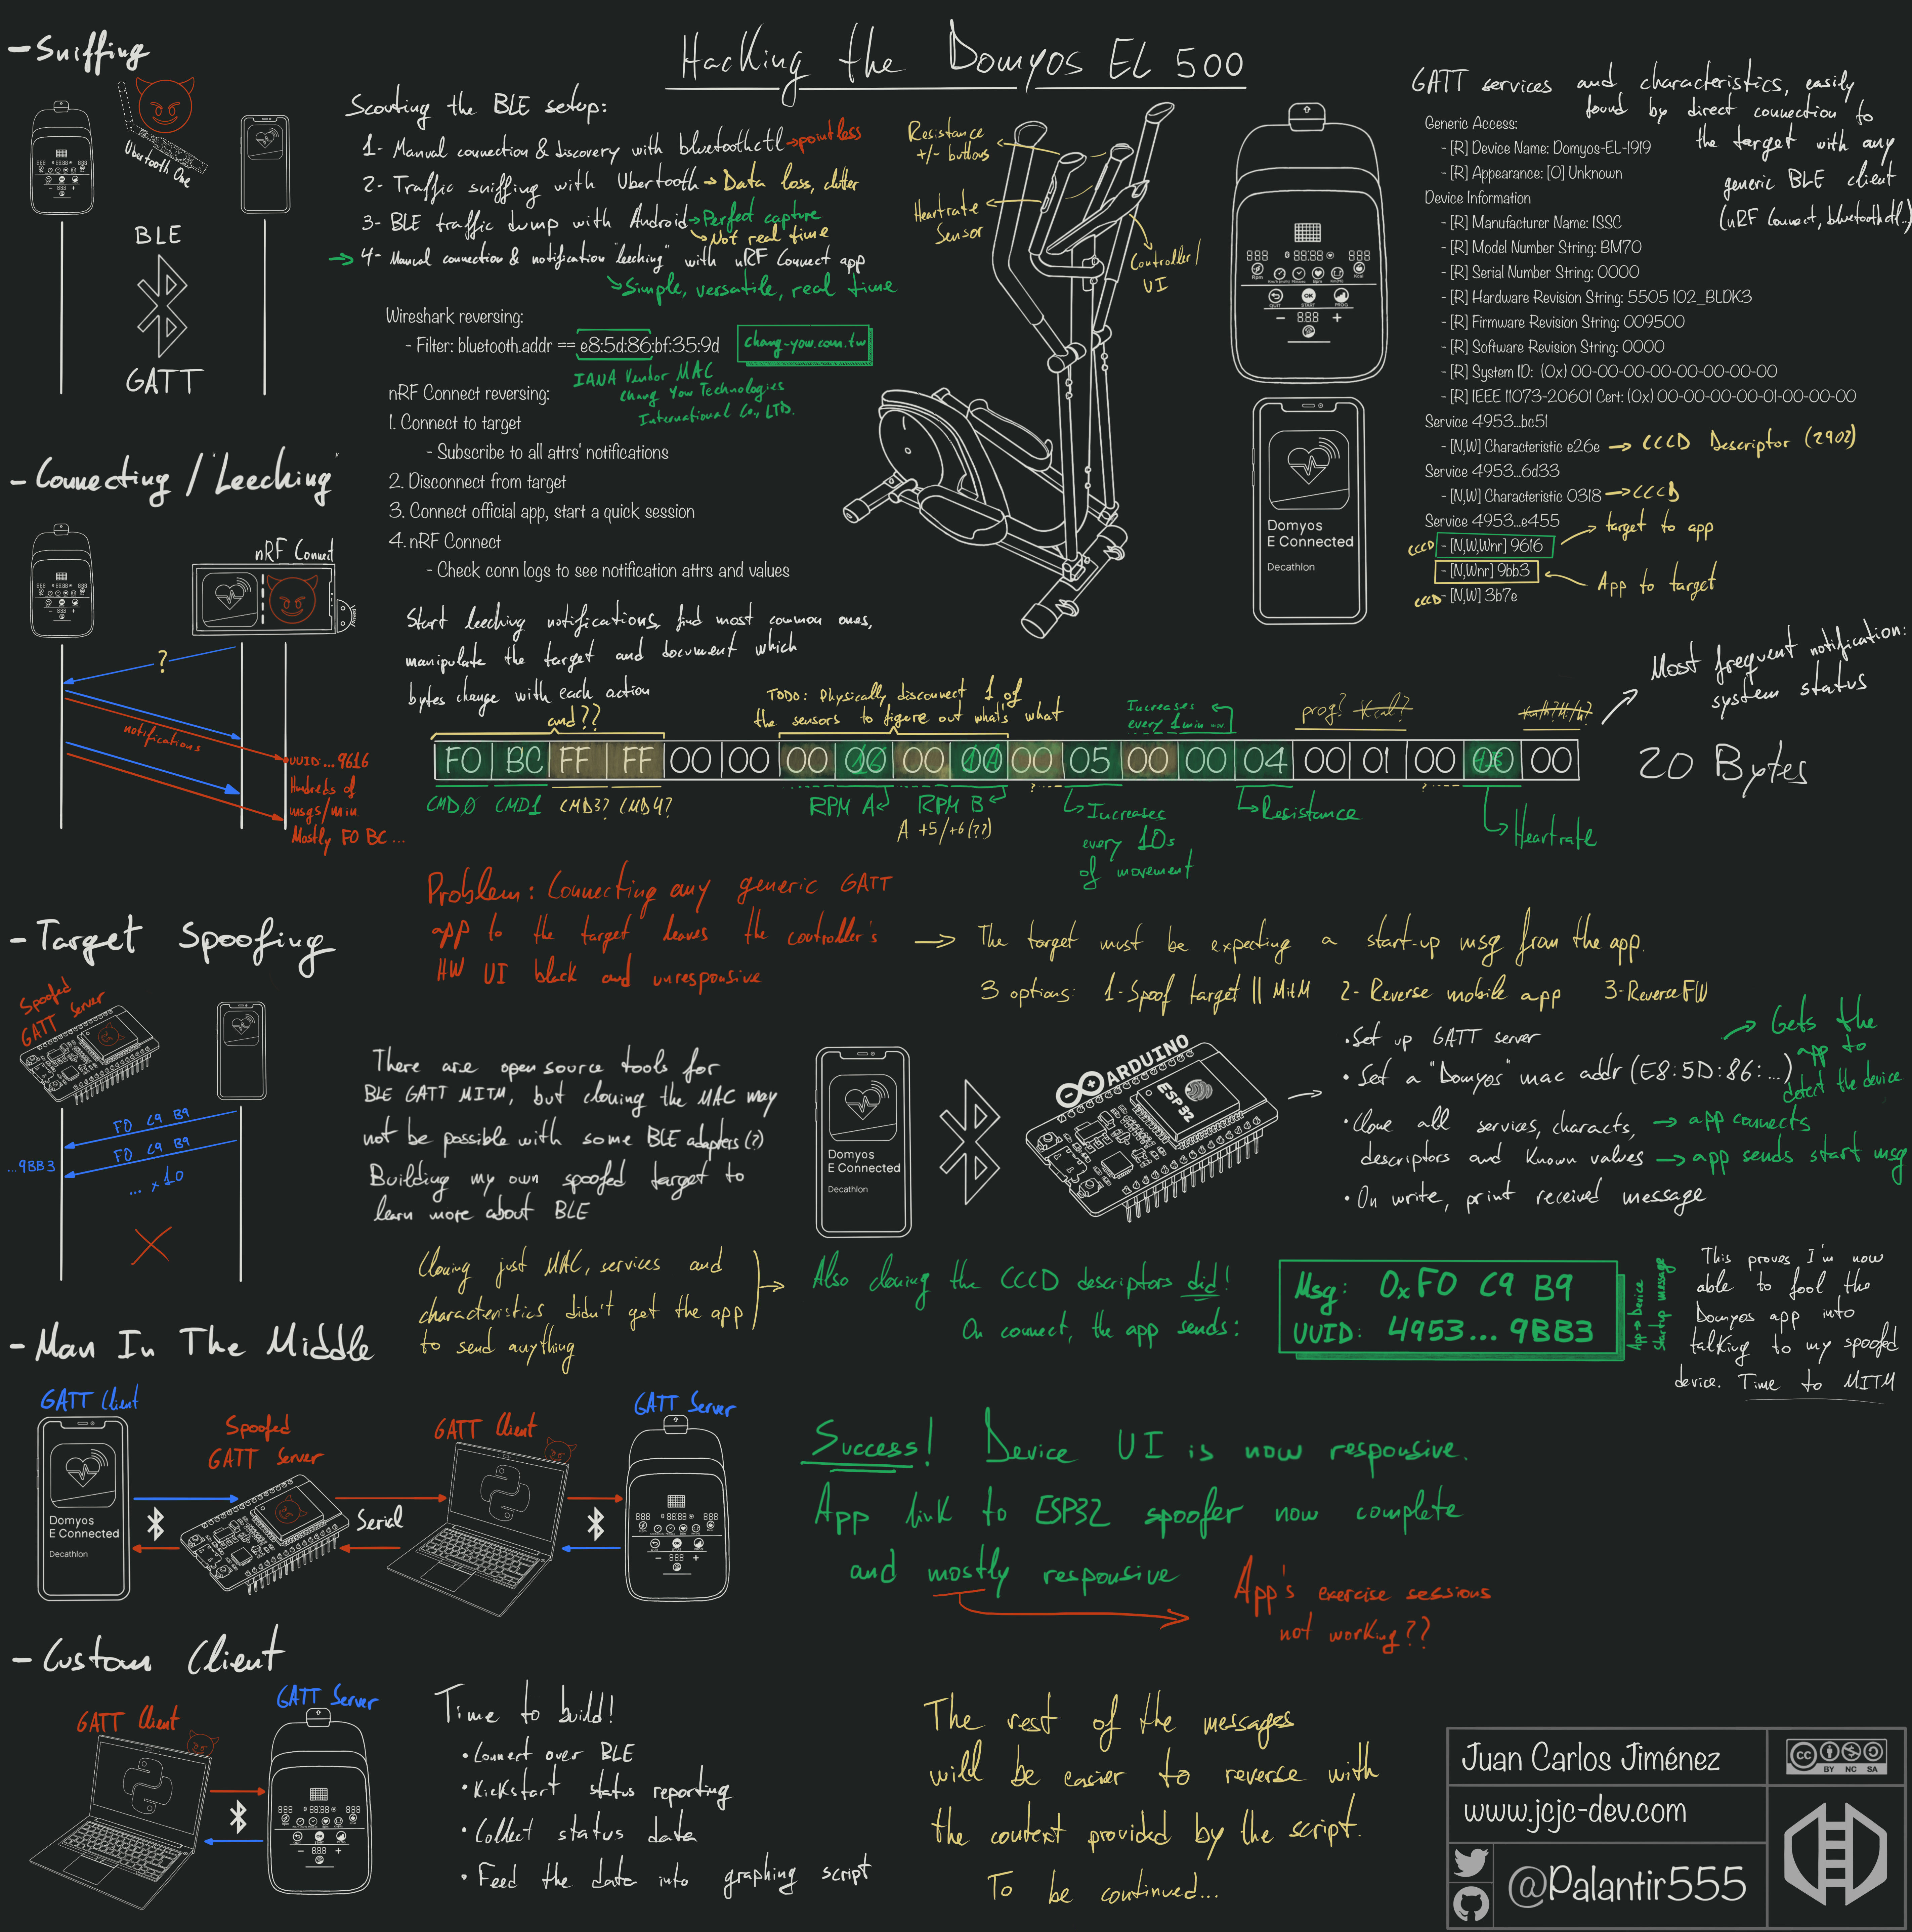 Hacking the Domyos EL 500
- Sniffing
Ubertooth One
BLE
GATT
Scouting the BLE setup:
1- Manual connection & discovery with bluetoothctl → pointless
2- Traffic sniffing with Ubertooth → Data loss, clutter
3- BLE traffic dump with Android → Perfect capture
↳ Not real time
→ 4- Manual connection & notification "leeching" with nRF Connect app
↳ Simple, versatile, real time
Wireshark reversing:
- Filter: bluetooth.addr == e8:5d:86:bf:35:9d
chang-yow.com.tw
IANA Vendor MAC
Chang Yow Technologies
International Co., LTD.
nRF Connect reversing:
1. Connect to target
- Subscribe to all attrs' notifications
2. Disconnect from target
3. Connect official app, start a quick session
4. nRF Connect
- Check conn logs to see notification attrs and values
Resistance
+/- buttons
Heartrate
Sensor
Controller/
UI
Domyos
E Connected
Decathlon
GATT services and characteristics, easily
found by direct connection to
the target with any
generic BLE client
(nRF Connect, bluetoothctl...)
Generic Access:
- [R] Device Name: Domyos-EL-1919
- [R] Appearance: [0] Unknown
Device Information
- [R] Manufacturer Name: ISSC
- [R] Model Number String: BM70
- [R] Serial Number String: 0000
- [R] Hardware Revision String: 5505 102_BLDK3
- [R] Firmware Revision String: 009500
- [R] Software Revision String: 0000
- [R] System ID: (0x) 00-00-00-00-00-00-00-00
- [R] IEEE 11073-20601 Cert: (0x) 00-00-00-00-01-00-00-00
Service 4953...bc51
- [N,W] Characteristic e26e → CCCD Descriptor (2902)
Service 4953...6d33
- [N,W] Characteristic 0318 → CCCD
Service 4953...e455
CCCD - [N,W,Wnr] 9616
target to app
- [N,Wnr] 9bb3 ← App to target
CCCD - [N,W] 3b7e
- Connecting / "Leeching"
nRF Connect
?
notifications
UUID: ... 9616
Hundreds of
msgs/min
Mostly F0 BC ...
Start leeching notifications, find most common ones,
manipulate the target and document which
bytes change with each action
and ??
TODO: Physically disconnect 1 of
the sensors to figure out what's what
Increases
every 1 min
prog? Kcal?
Most frequent notification:
system status
F0 BC FF FF 00 00 00 00 00 00 00 05 00 00 04 00 01 00 00 00
20 Bytes
CMD0 CMD1 CMD3? CMD4?
RPM A
RPM B
A +5/+6(??)
↳ Increases
every 10s
of movement
↳ Resistance
↳ Heartrate
Problem: Connecting any generic GATT
app to the target leaves the controller's
HW UI black and unresponsive
→ The target must be expecting a start-up msg from the app.
3 options: 1-Spoof target || MitM 2- Reverse mobile app 3-Reverse FW
- Target Spoofing
Spoofed
GATT Server
F0 C9 B9
F0 C9 B9
...9BB3
... x10
There are open source tools for
BLE GATT MITM, but cloning the MAC may
not be possible with some BLE adapters (?)
Building my own spoofed target to
learn more about BLE
Domyos
E Connected
Decathlon
ARDUINO
ESP32
• Set up GATT server
• Set a "Domyos" mac addr (E8:5D:86:...)
→ Gets the
app to
detect the device
• Clone all services, characts, → app connects
descriptors and known values → app sends start msg
• On write, print received message
Cloning just MAC, services and
characteristics didn't get the app
to send anything
Also cloning the CCCD descriptors did!
On connect, the app sends:
Msg: 0xF0 C9 B9
UUID: 4953... 9BB3
App → Device
startup message
This proves I'm now
able to fool the
Domyos app into
talking to my spoofed
device. Time to MITM
- Man In The Middle
GATT Client
Spoofed
GATT Server
GATT Client
GATT Server
Domyos
E Connected
Decathlon
Serial
Success! Device UI is now responsive.
App link to ESP32 spoofer now complete
and mostly responsive
App's exercise sessions
not working??
- Custom Client
GATT Client
GATT Server
Time to build!
• Connect over BLE
• Kickstart status reporting
• Collect status data
• Feed the data into graphing script
The rest of the messages
will be easier to reverse with
the context provided by the script.
To be continued...
Juan Carlos Jiménez
www.jcjc-dev.com
@Palantir555
CC BY NC SA